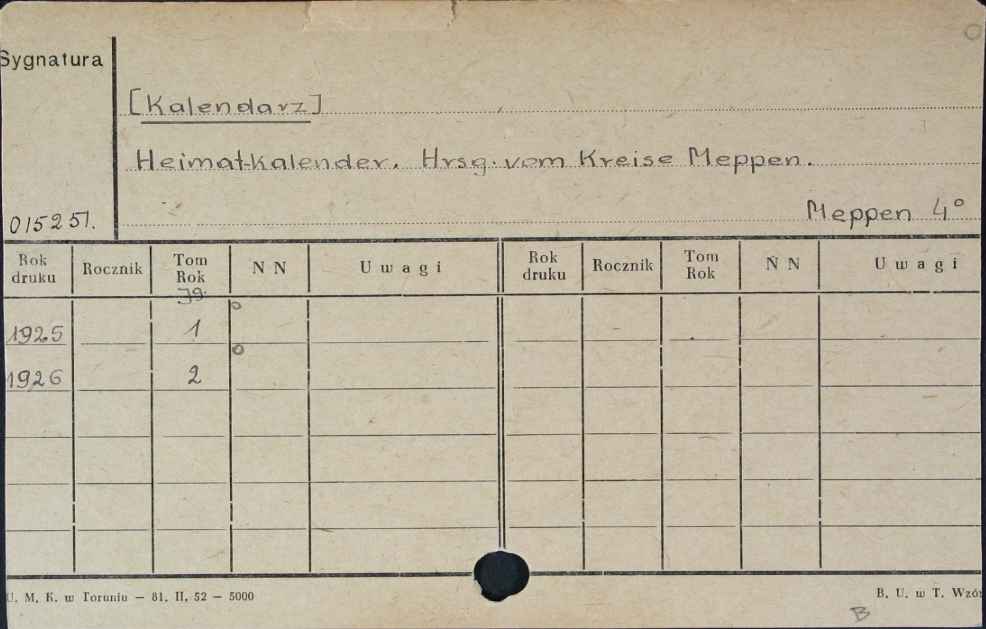 Sygnatura
[Kalendarz]
Heimatkalender. Hrsg. vom Kreise Meppen.
015251. Meppen 4°
Rok druku Rocznik Tom Rok N N Uwagi Rok druku Rocznik Tom Rok N N Uwagi
Jg.
1925 1
1926 2
U. M. K. w Toruniu — 81. II. 52 — 5000 B. U. w T. Wzór
B